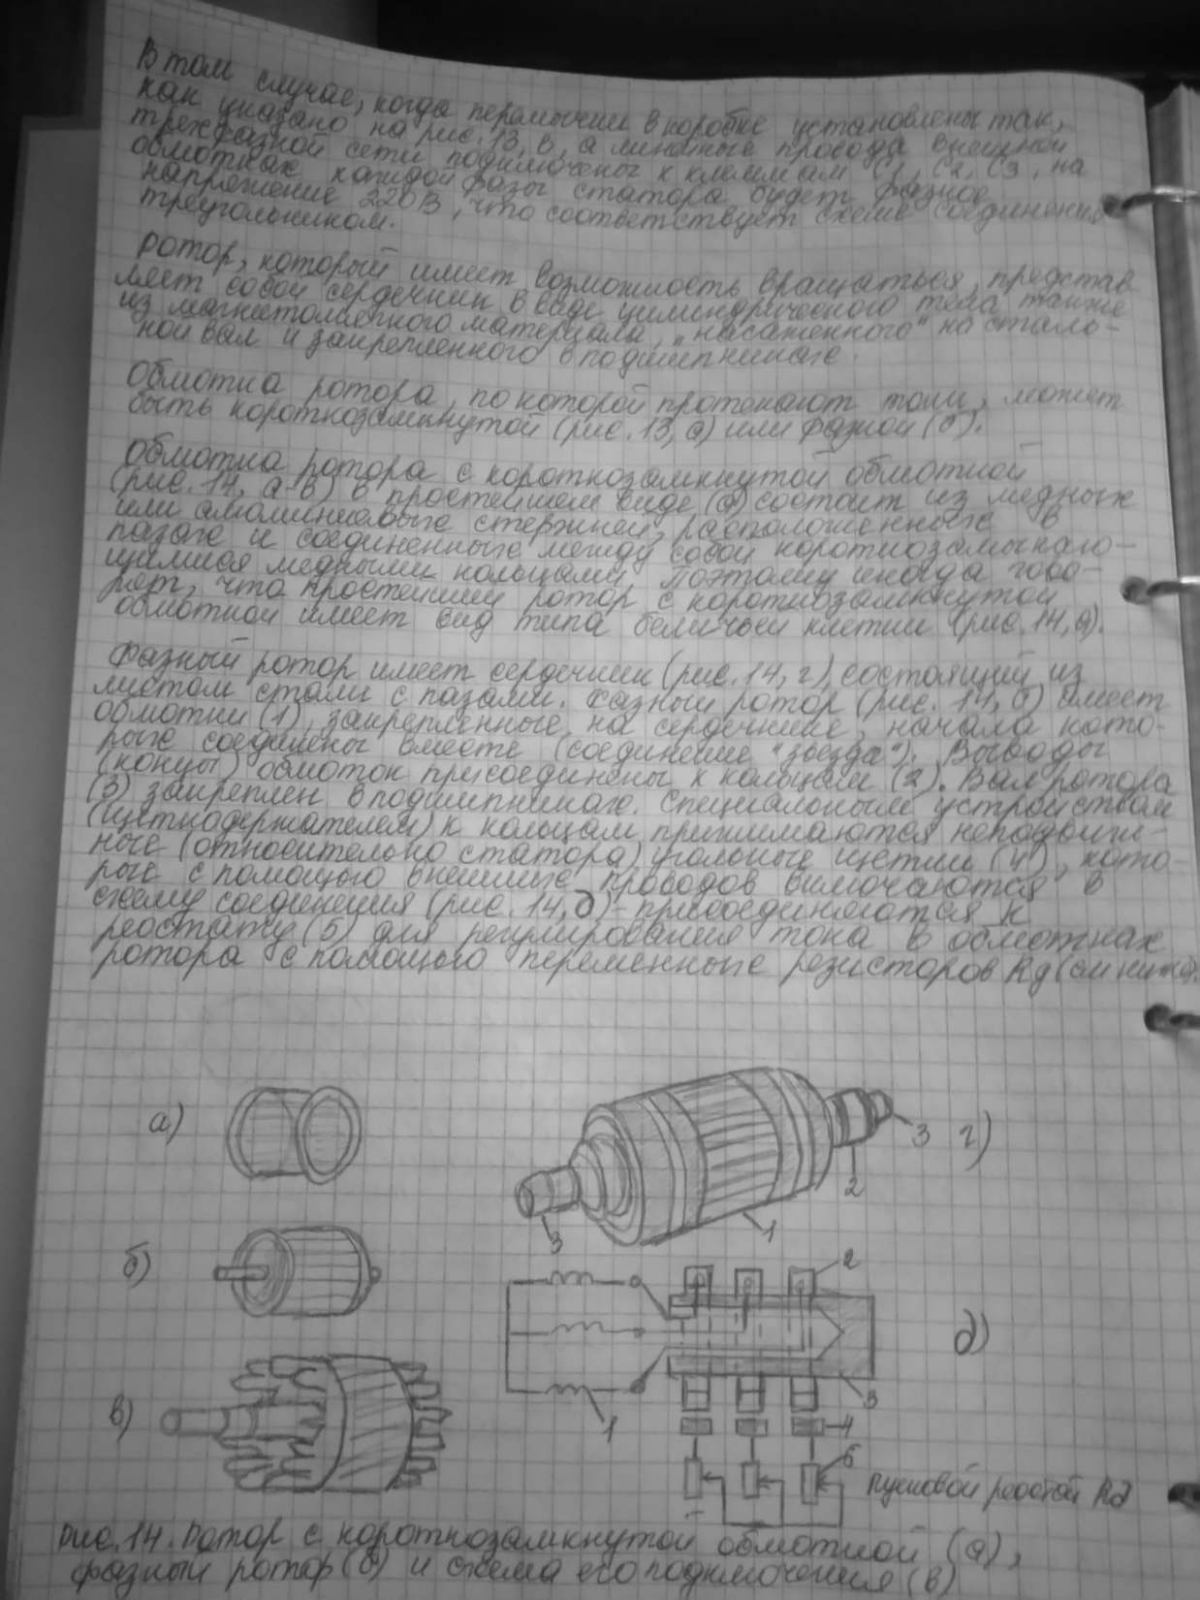 В том случае, когда перемычки в коробке установлены так,
как указано на рис. 13, в, а линейные провода внешней
трехфазной сети подключены к клеммам С1, С2, С3, на
обмотках каждой фазы статора будет фазное
напряжение 220В, что соответствует схеме соединения
треугольником.
Ротор, который имеет возможность вращаться, представ
ляет собой сердечник в виде цилиндрического тела также
из магнитомягкого материала, „насаженного" на сталь-
ной вал и закрепленного в подшипниках.
Обмотка ротора, по которой протекают токи, может
быть короткозамкнутой (рис. 13, а) или фазной (б).
Обмотка ротора с короткозамкнутой обмоткой
(рис. 14, а-в) в простейшем виде (а) состоит из медных
или алюминиевых стержней, расположенных в
пазах и соединенных между собой короткозамыкаю-
щимися медными кольцами. Поэтому иногда гово-
рят, что простейший ротор с короткозамкнутой
обмоткой имеет вид типа беличьей клетки (рис. 14, а).
Фазный ротор имеет сердечник (рис. 14, г), состоящий из
листом стали с пазами. Фазный ротор (рис. 14, б) имеет
обмотки (1), закрепленные на сердечнике, начала кото-
рых соединены вместе (соединение "звезда"). Выводы
(концы) обмоток присоединены к кольцам (2). Вал ротора
(3) закреплен в подшипниках. Специальным устройством
(щеткодержателем) к кольцам прижимаются неподвиж-
ные (относительно статора) угольные щетки (4), кото-
рые с помощью внешних проводов включаются в
схему соединения (рис. 14, д) - присоединяются к
реостату (5) для регулирования тока в обмотках
ротора с помощью переменных резисторов Rд (см ниже).
а)
3 г)
2
1
3
б)
2
д)
3
в)
1
4
5
Пусковой реостат Rд
Рис. 14. Ротор с короткозамкнутой обмоткой (а),
фазный ротор (б) и схема его подключения (в)